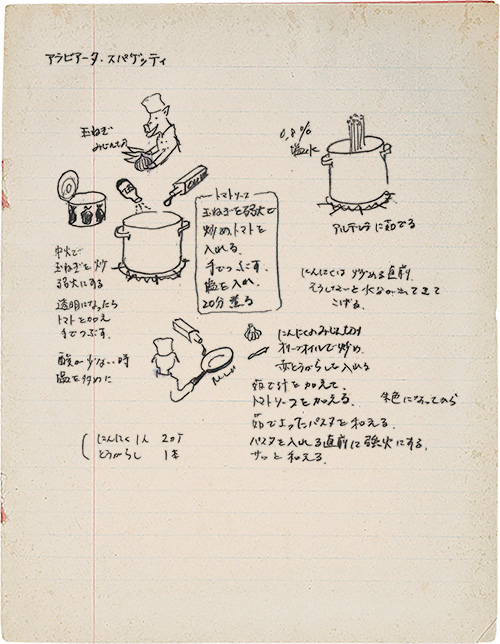 アラビアータ・スパゲッティ
玉ねぎ
みじん切り
0.8%
塩水
アルデンテに茹でる
トマトソース
玉ねぎを弱火で
炒めトマトを
入れる。
手でつぶす。
塩を入れ
20分煮る
中火で
玉ねぎを炒
弱火にする
透明になったら
トマトを加え
手でつぶす。
酸が少ない時
塩を炒めに
にんにくは炒める直前
そうしないと水が出てきて
こげる。
にんにくのみじん切り
オリーブオイルで炒め
赤とうがらしを入れる
茹で汁を加えて
トマトソースを加える。
朱色になってから
茹で上ったパスタを和える。
パスタを入れる直前に強火にする。
サッと和える。
にんにく 1人 2ケ
とうがらし 1本